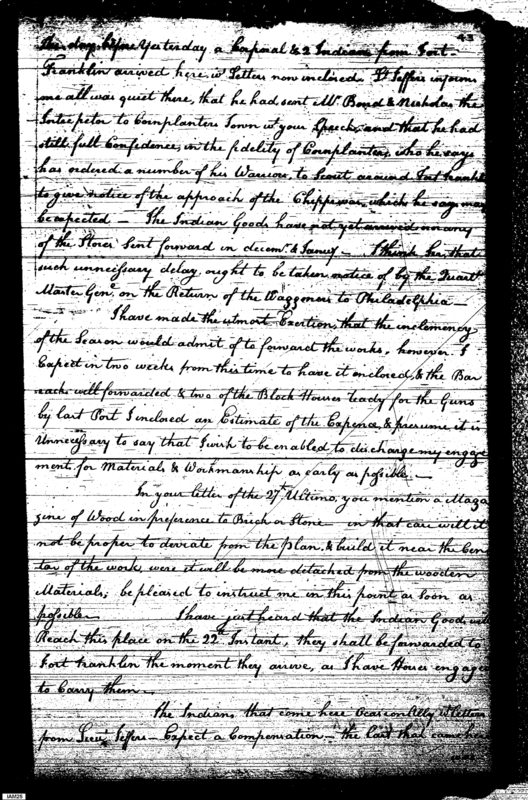 43
The day before Yesterday a Corporal & 2 Indians from Fort
Franklin arrived here wt. Letters now inclined. Lt. Jeffers informs
me all was quiet there, that he had sent Mr. Bond & Nicholas the
Interpetor to Cornplanters Town wt. your Speech, and that he had
still full Confedence, in the fidelity of Cornplanter, who he says
has ordered a number of his Warriors, to Scout around Fort Frankln
to give notice of the approach of the Chippewas, which he says may
be expected — The Indian Goods have not yet arrived nor any
of the Stores Sent forward in decemr. & Januy — I think Sir, that
such unnecessary delay, ought to be taken notice of by the Quartr.
Master Genl. on the Return of the Waggoners to Philadelphia —
I have made the utmost Exertion, that the inclemency
of the Season would admit of to forward the works, however I
Expect in two weeks from this time to have it enclosed, & the Bar
racks well forwarded & two of the Block Houses ready for the Guns
by last Post I inclosed an Estimate of the Expence, & presume it is
Unnecessary to say that I wish to be enabled to discharge my engage
ment, for Materials & Workmanship as early as possible —
In your letter of the 27th. Ultimo, you mention a Maga
zine of Wood in preference to Brick or Stone — in that case will it
not be proper to deviate from the plan, & build it near the Cen
tar of the work, were it will be more detached from the wooden
Materials; be pleased to instruct me in this point as soon as
possible — I have just heard that the Indian Goods will
Reach this place on the 22d. Instant, they shall be forwarded to
Fort Franklin the moment they arrive, as I have Horses engaged
to Carry them —
The Indians that come here Ocasionally wt. letters
from Lieut. Jeffers — Expect a Compensation — the last that came here
IAM26